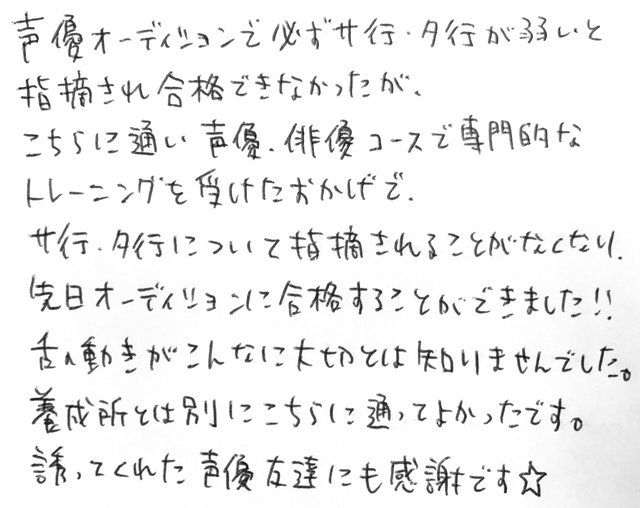 声優オーディションで必ずサ行・タ行が弱いと
指摘され合格できなかったが、
こちらに通い声優、俳優コースで専門的な
トレーニングを受けたおかげで、
サ行・タ行について指摘されることがなくなり、
先日オーディションに合格することができました!!
舌の動きがこんなに大切とは知りませんでした。
養成所とは別にこちらに通ってよかったです。
誘ってくれた声優友達にも感謝です☆